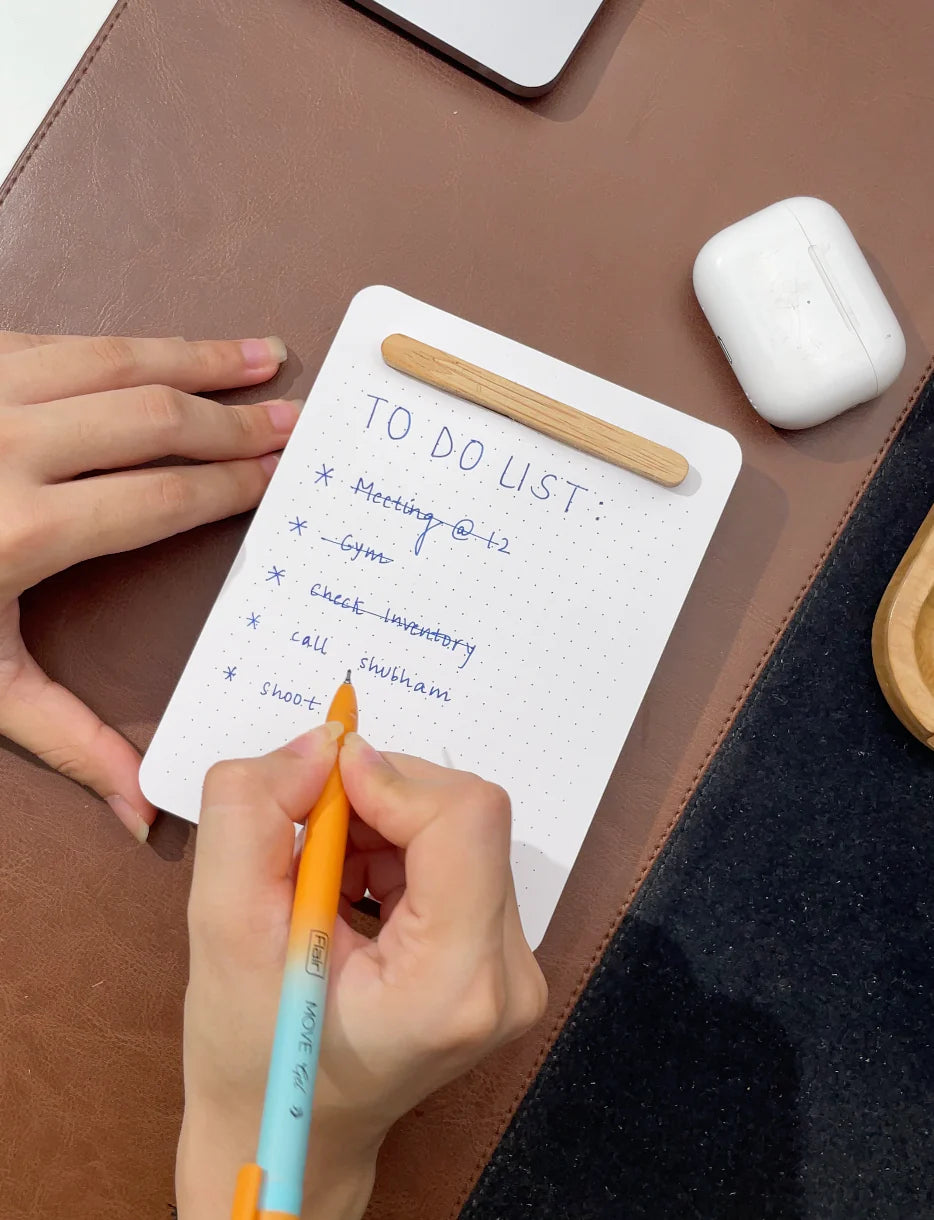 TO DO LIST :
* Meeting @ 12
* Gym
* Check Inventory
* call shubham
* shoot
Flair MOVE Gel